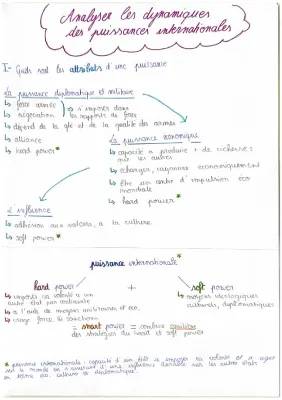 Analyser les dynamiques
des puissances internationales
I- Quels sont les attributs d'une puissance
La puissance diplomatique et militaire
↳ force armée
↳ négociation
↳ s'imposer dans
les rapports de force
↳ dépend de la qté et de la qualité des armes
↳ alliance
↳ hard power*
La puissance économique
↳ capacité à produire + de richesses
que les autres
↳ échanger, rayonner économiquement
↳ être un centre d'impulsion éco
mondiale
↳ hard power*
L'influence
↳ adhésion aux valeurs, à la culture
↳ soft power*
puissance internationale*
hard power + soft power
↳ imposer sa volonté à un
autre état par contrainte
↳ à l'aide de moyens militaires et éco
↳ usage force et sanctions
↳ moyens idéologiques
culturels, diplomatiques
= smart power = combine
des stratégies du hard et soft power
*puissance internationale: capacité d'un État à imposer sa volonté et à agir
sur le monde en exerçant d'une influence décisive sur les autres états
en terme éco, culturel et diplomatique.